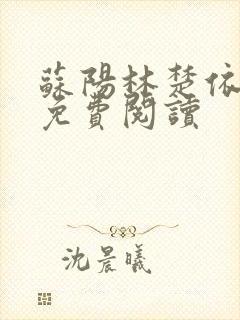 蘇陽林楚依
免費閱讀
沈晨曦